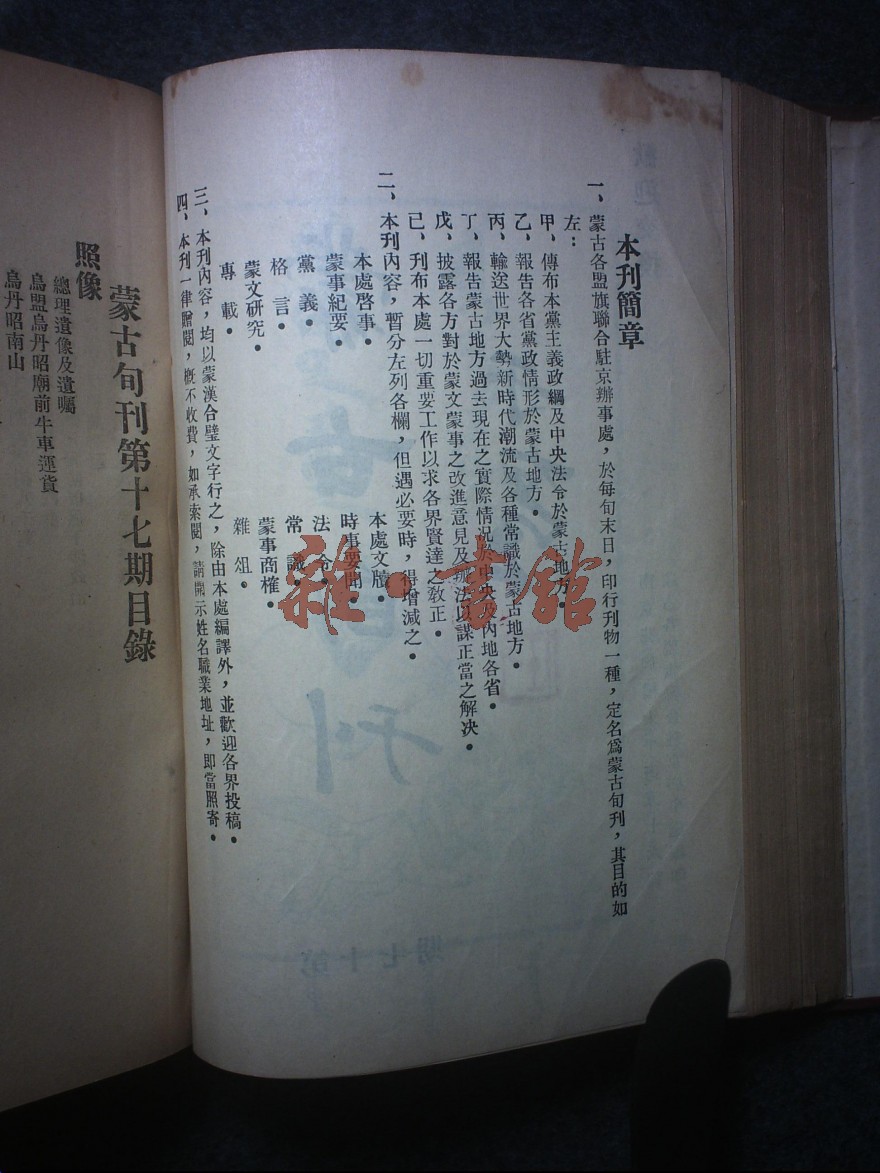 本刊簡章
一、蒙古各盟旗聯合駐京辦事處，於每旬末日，印行刊物一種，定名爲蒙古旬刊，其目的如
左：
甲、傳布本黨主義政綱及中央法令於蒙古地方．
乙、報告各省黨政情形於蒙古地方．
丙、輸送世界大勢新時代潮流及各種常識於蒙古地方．
丁、報告蒙古地方過去現在之實際情况於中央及內地各省．
戊、披露各方對於蒙文蒙事之改進意見及辦法以謀正當之解決．
己、刋布本處一切重要工作以求各界賢達之敎正．
二、本刋內容，暫分左列各欄，但遇必要時，得增減之．
本處啓事．　本處文牘．
蒙事紀要．　時事要聞．
黨義．　法令．
格言．　常識．
蒙文硏究．　蒙事商榷．
專載．　雜俎．
三、本刋內容，均以蒙漢合璧文字行之，除由本處編譯外，並歡迎各界投稿．
四、本刊一律贈閱，概不收費，如承索閱，請開示姓名職業地址，即當照寄．
蒙古旬刊第十七期目錄
照像
總理遺像及遺囑
烏盟烏丹昭廟前牛車運貨
烏丹昭南山
雜·書館
期七十第